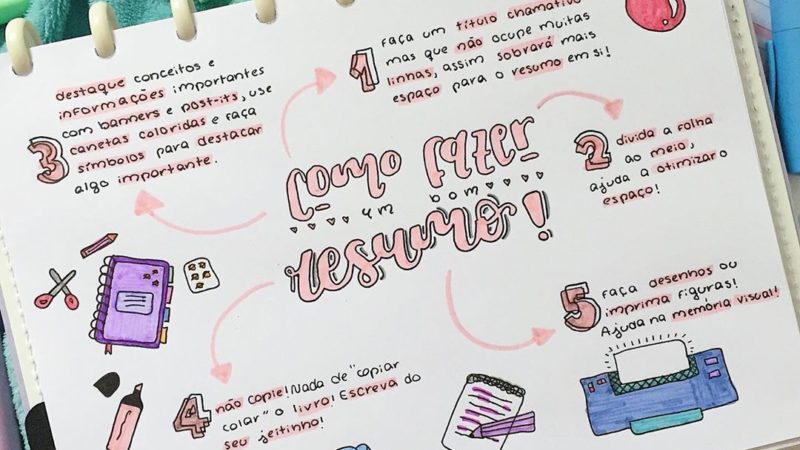 Como fazer
um bom
resumo!
1
Faça um título chamativo
mas que não ocupe muitas
linhas, assim sobrará mais
espaço para o resumo em si!
2
divida a folha
ao meio,
ajuda a otimizar o
espaço!
3
destaque conceitos e
informações importantes
com banners e post-its, use
canetas coloridas e faça
símbolos para destacar
algo importante.
4
não copie! Nada de "copiar
colar" o livro! Escreva do
seu jeitinho!
5
Faça desenhos ou
imprima figuras!
Ajuda na memória visual!